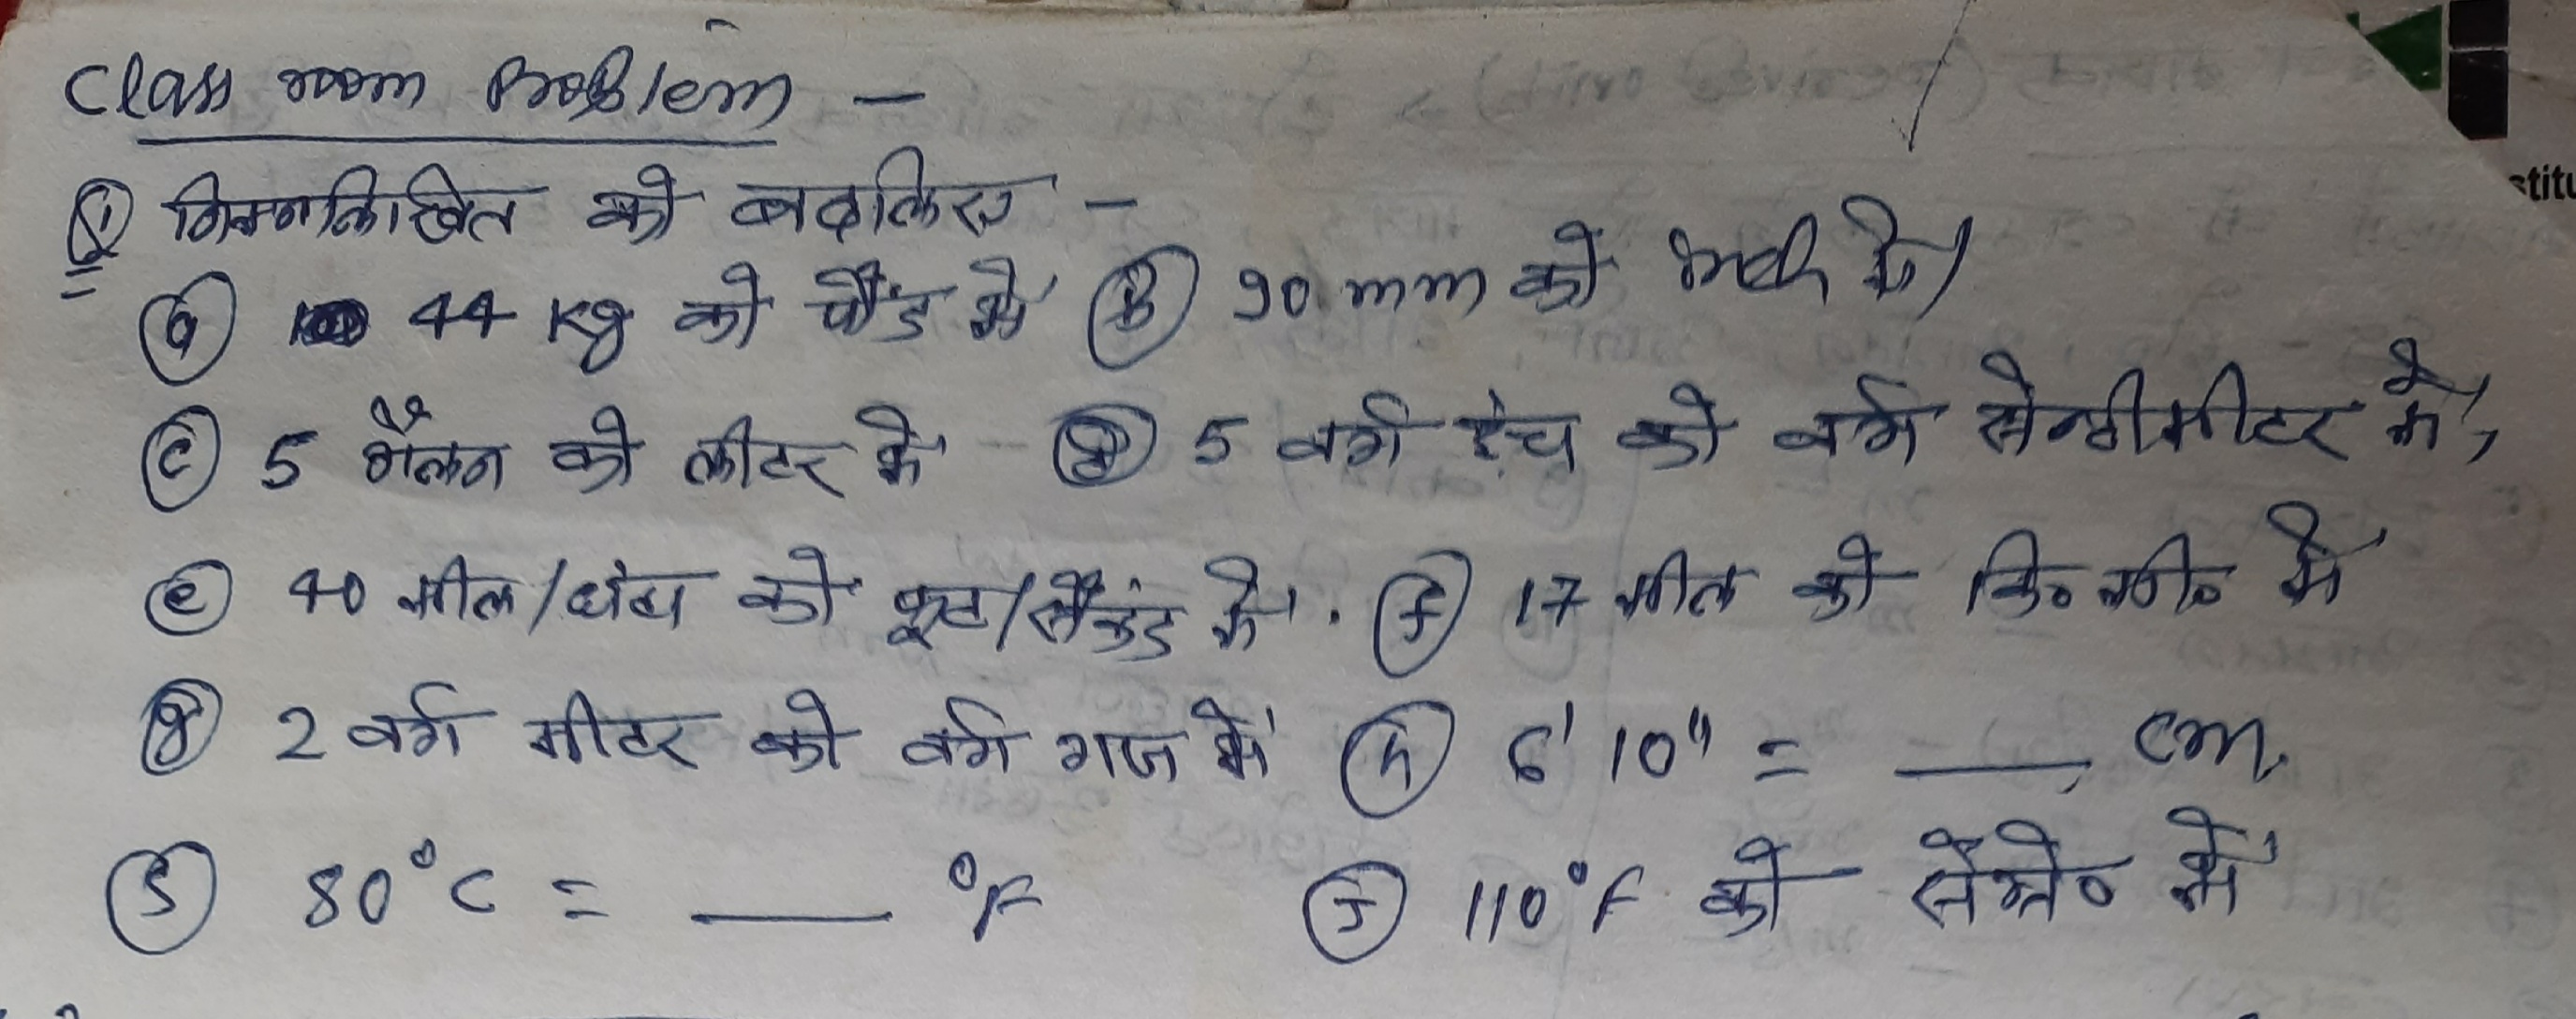 Class room Problem -
Q1 निम्नलिखित को बदलिए -
(a) 44 kg को पौंड में (b) 90 mm को Inch में।
(c) 5 गैलन को लीटर में (d) 5 वर्ग इंच को वर्ग सेन्टीमीटर में,
(e) 40 मील/घंटा को फूट/सैकंड में. (f) 17 मील को कि० मी० में
(g) 2 वर्ग मीटर को वर्ग गज में (h) 6' 10" = ___ cm.
(i) 80°C = ___ °F (J) 110°F को सें०ग्रे० में
stitu